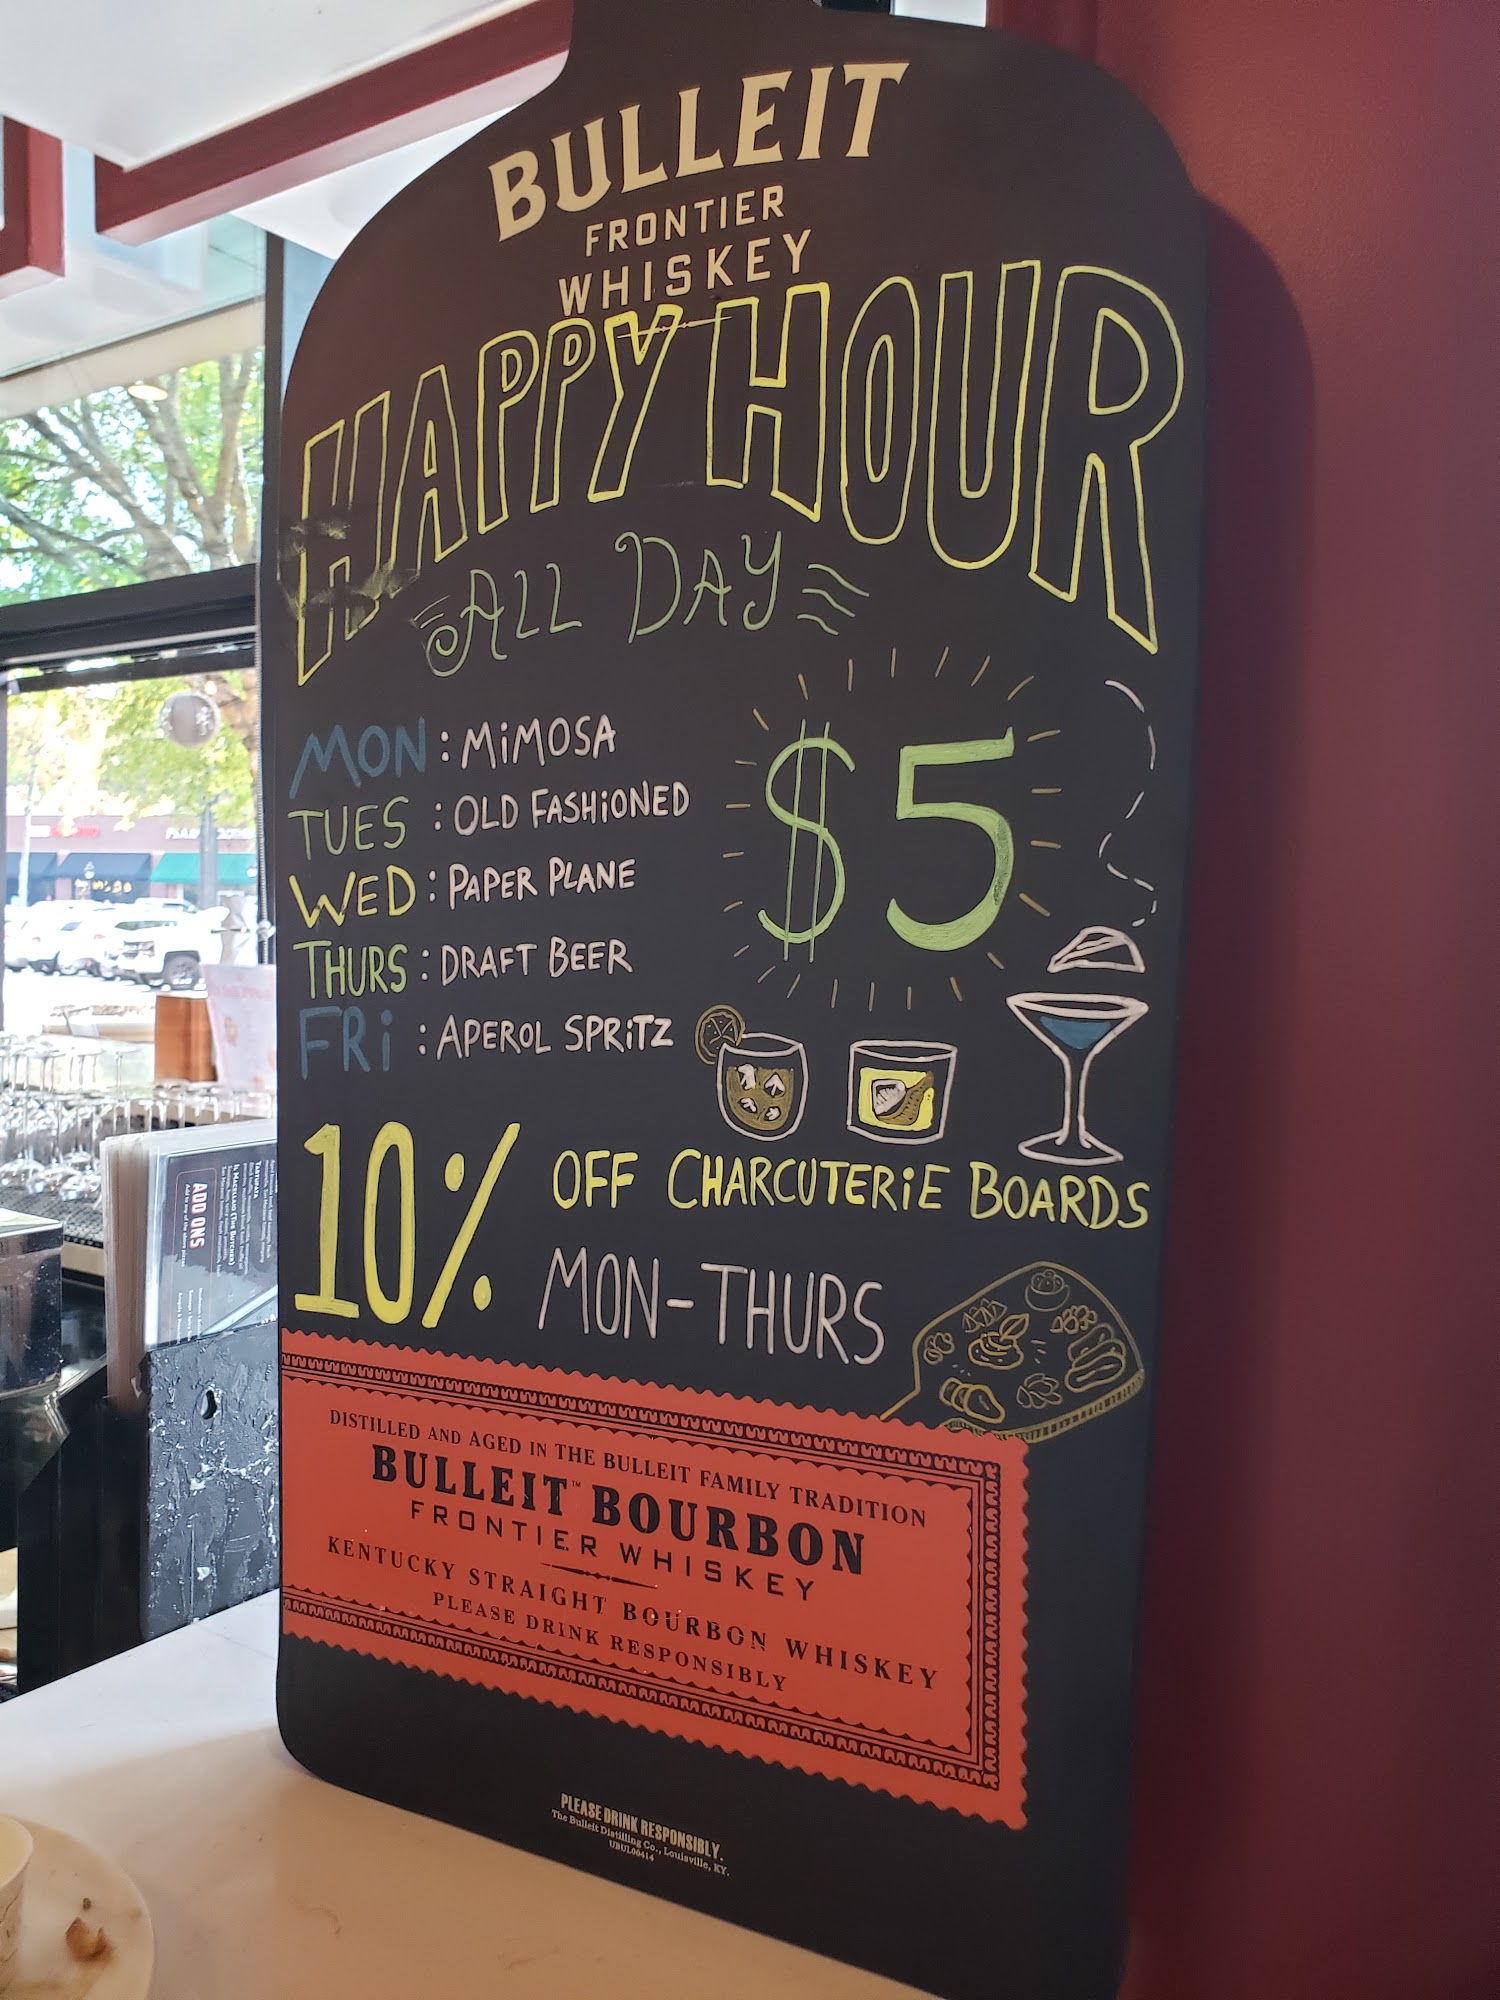 BULLEIT
FRONTIER
WHISKEY
HAPPY HOUR
ALL DAY
MON : MiMOSA
TUES : OLD FASHiONED
WED : PAPER PLANE
THURS : DRAFT BEER
FRi : APEROL SPRiTZ
$5
10% OFF CHARCUTERiE BOARDS
MON-THURS
DISTILLED AND AGED IN THE BULLEIT FAMILY TRADITION
BULLEIT™ BOURBON
FRONTIER WHISKEY
KENTUCKY STRAIGHT BOURBON WHISKEY
PLEASE DRINK RESPONSIBLY
PLEASE DRINK RESPONSIBLY.
The Bulleit Distilling Co., Louisville, KY.
UBUL00414
TARTUFATA
IL MACELLAIO (THE BUTCHER)
ADD ONS
Add to any of the above pizzas